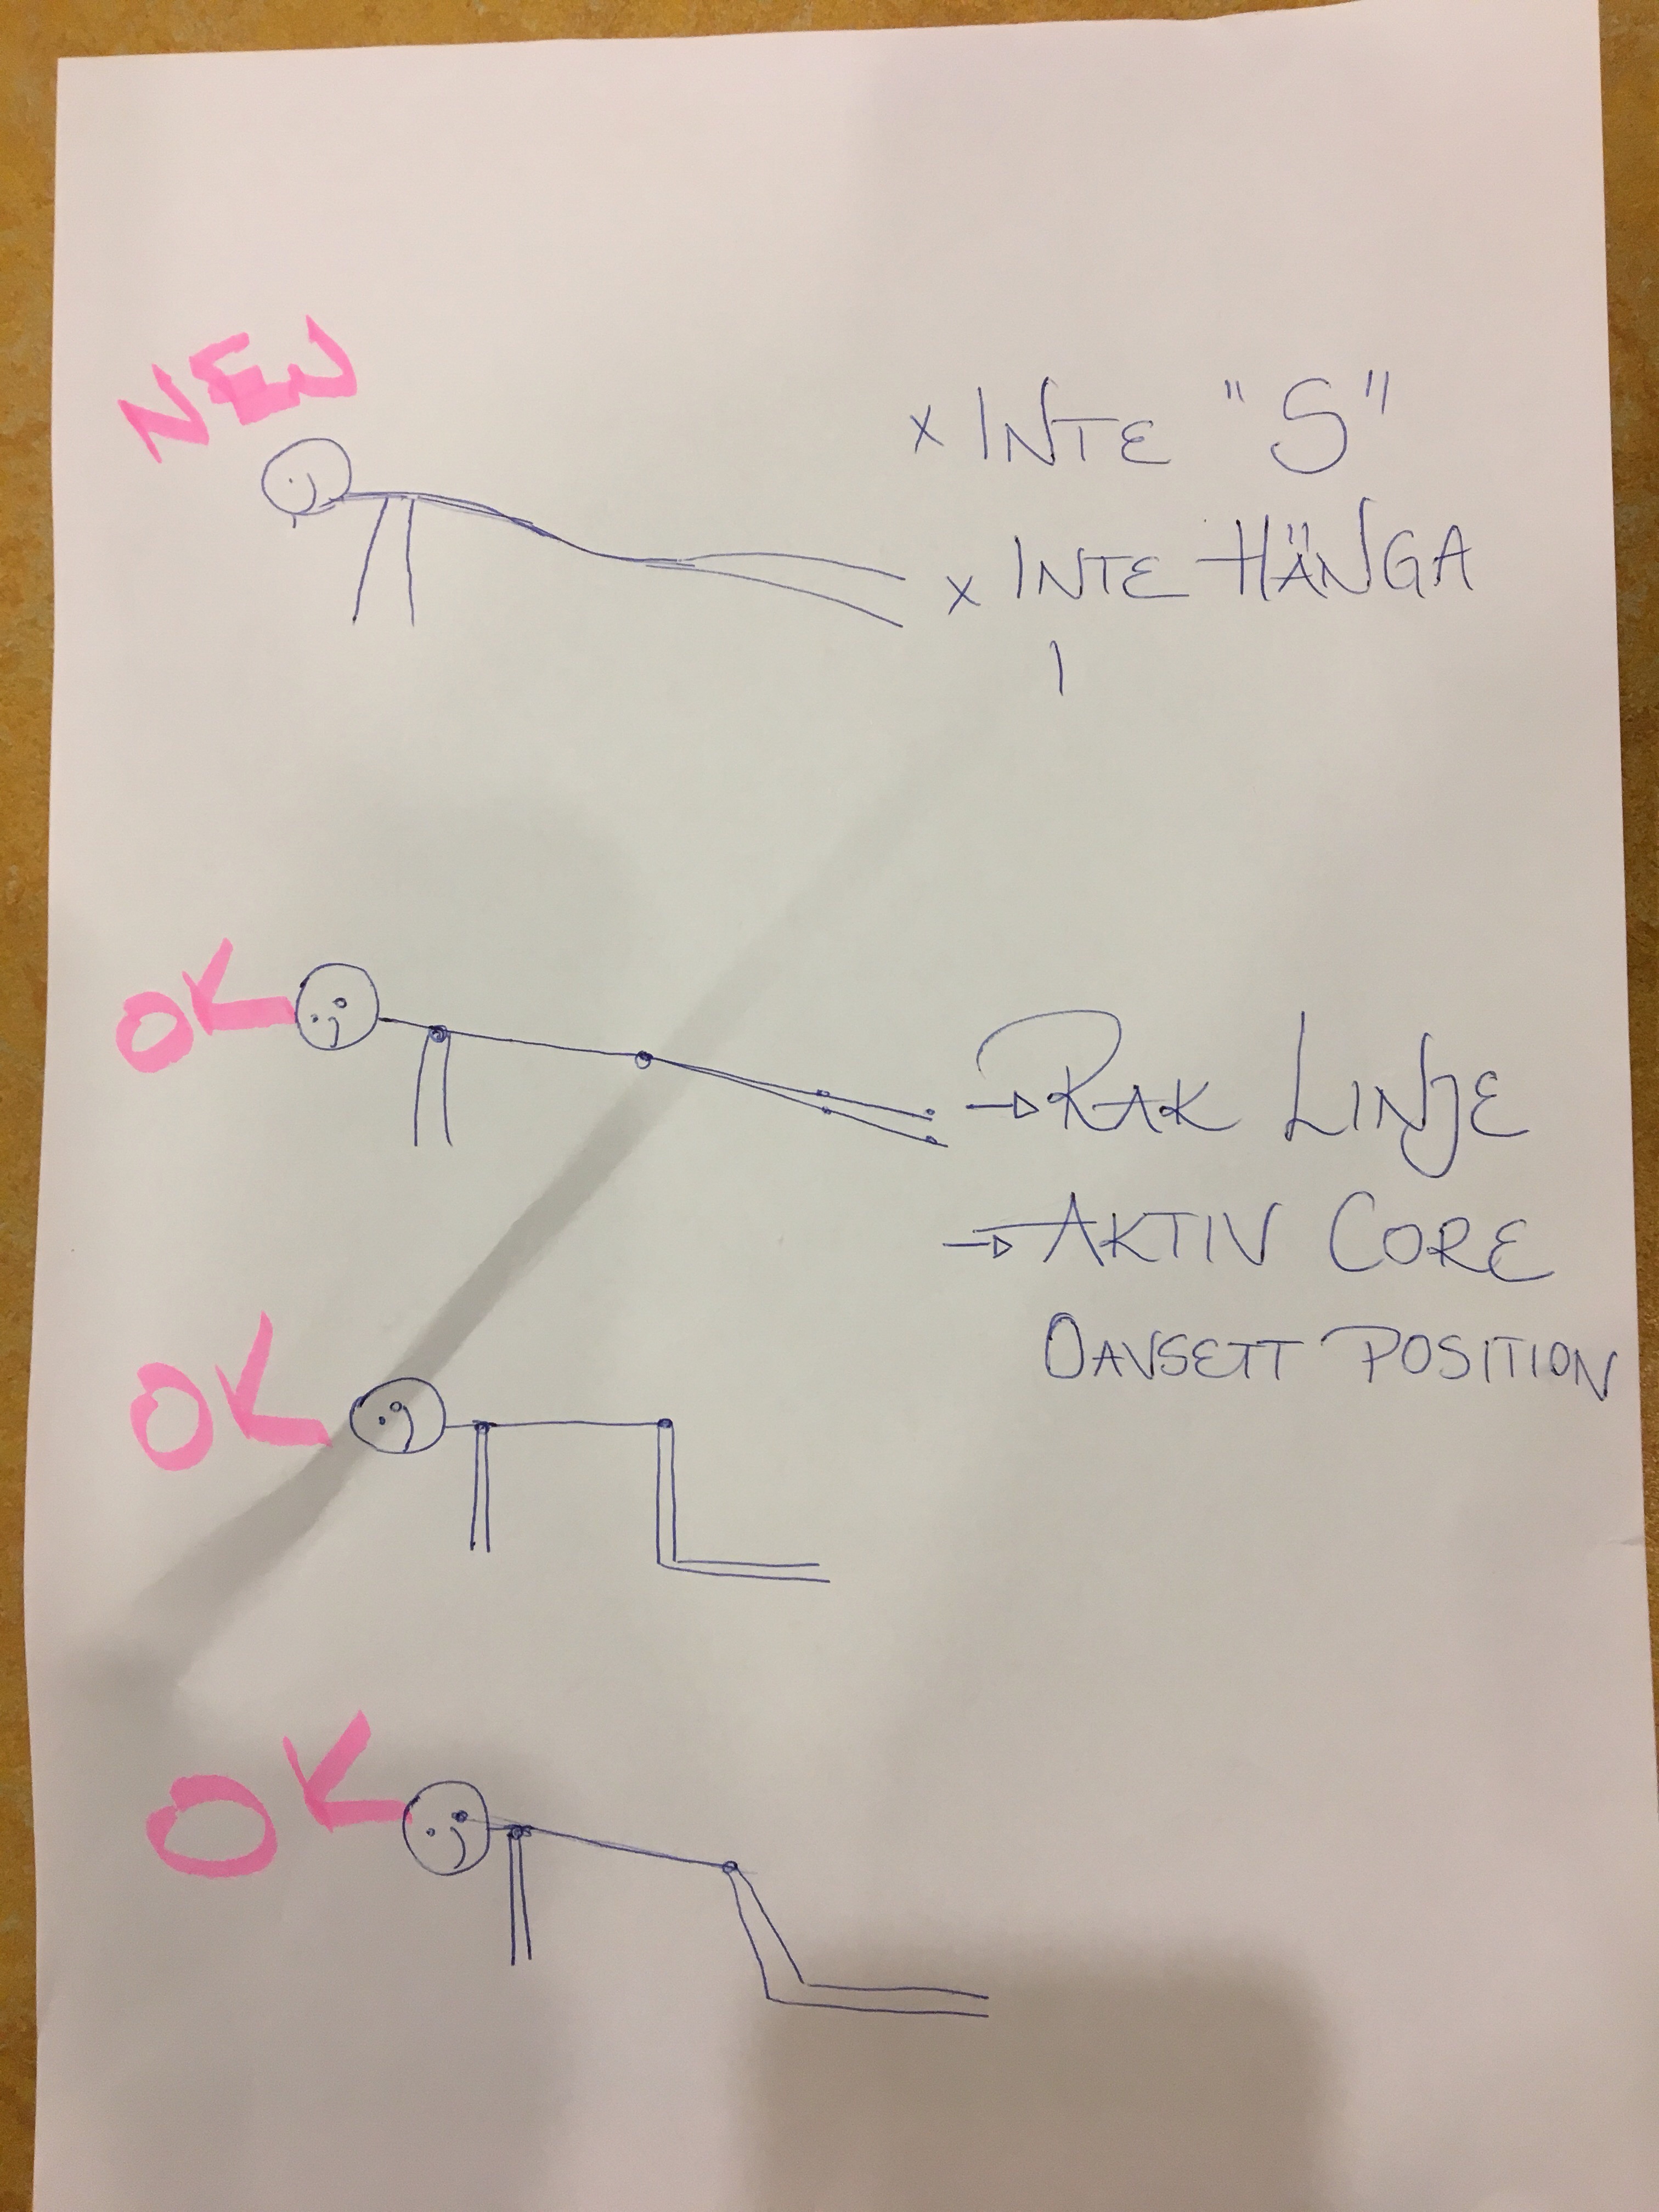 NEW
x INTE "S"
x INTE HÄNGA
I
OK
→ RAK LINJE
→ AKTIV CORE
OAVSETT POSITION
OK
OK